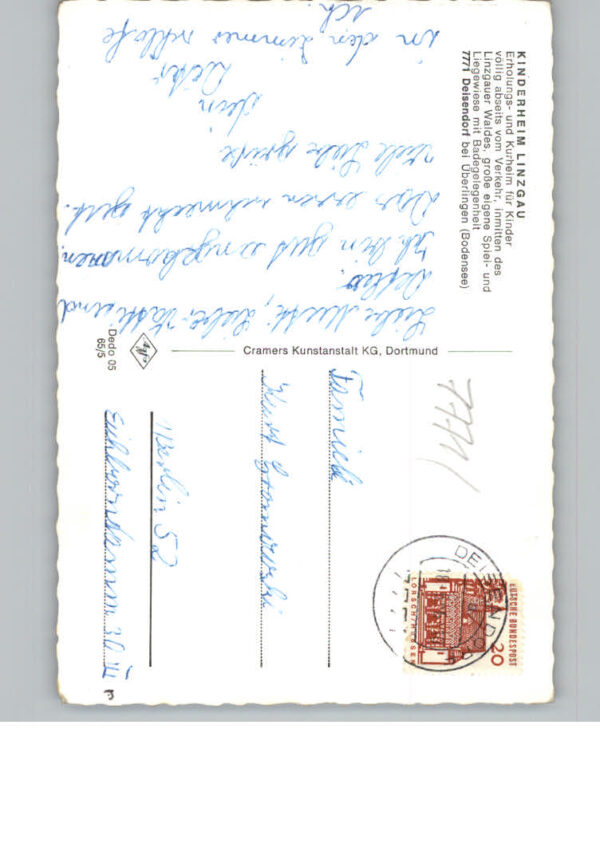 KINDERHEIM LINZGAU
Erholungs- und Kurheim für Kinder
völlig abseits vom Verkehr, inmitten des
Linzgauer Waldes, große eigene Spiel- und
Liegewiese mit Badegelegenheit
7771 Deisendorf bei Überlingen (Bodensee)
Liebe Mutti, Lieber Vatti und
Detlev.
Ich bin gut angekommen.
Das essen schmeckt gut.
Viele Liebe grüße
dein
in den Zimmer schlafe
ich.
Cramers Kunstanstalt KG, Dortmund
Dedo 05
65/5
7771
DEISENDORF
DEUTSCHE BUNDESPOST
20
LORSCH/HESSEN
Familie
Kurt
Berlin 52
Eichborndamm